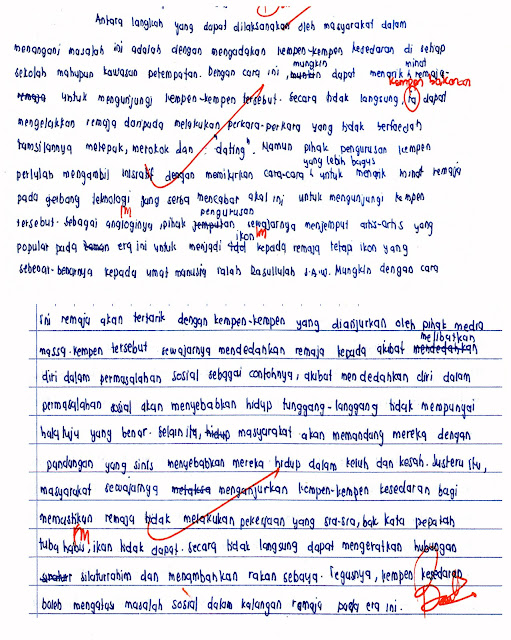 Antara langkah yang dapat dilaksanakan oleh masyarakat dalam
menangani masalah ini adalah dengan mengadakan kempen-kempen kesedaran di setiap
mungkin minat
sekolah mahupun kawasan petempatan. Dengan cara ini, dapat menarik remaja-
kempen berkenaan
remaja untuk mengunjungi kempen-kempen tersebut. Secara tidak langsung, ia dapat
mengelakkan remaja daripada melakukan perkara-perkara yang tidak berfaedah
tamsilannya melepak, merokok dan "dating". Namun pihak pengurusan kempen
yang lebih bagus
perlulah mengambil inisiatif dengan memikirkan cara-cara untuk menarik minat remaja
pada gerbang teknologi yang serba mencabar akal ini untuk mengunjungi kempen
pengurusan
tersebut. Sebagai analoginya, pihak jemputan sewajarnya menjemput artis-artis yang
ikon
popular pada zaman era ini untuk menjadi idol kepada remaja tetapi ikon yang
sebenar-benarnya kepada umat manusia ialah Rasulullah S.A.W. Mungkin dengan cara
ini remaja akan tertarik dengan kempen-kempen yang dianjurkan oleh pihak media
melibatkan
massa. Kempen tersebut sewajarnya mendedahkan remaja kepada akibat mendedahkan
diri dalam permasalahan sosial sebagai contohnya, akibat mendedahkan diri dalam
permasalahan sosial akan menyebabkan hidup tunggang-langgang tidak mempunyai
halatuju yang benar. Selain itu, hidup masyarakat akan memandang mereka dengan
pandangan yang sinis menyebabkan mereka hidup dalam keluh dan kesah. Justeru itu,
masyarakat sewajarnya menganjurkan kempen-kempen kesedaran bagi
memastikan remaja tidak melakukan pekerjaan yang sia-sia, bak kata pepatah
tuba habis, ikan tidak dapat. Secara tidak langsung dapat mengeratkan hubungan
silaturahim dan menambahkan rakan sebaya. Tegusnya, kempen kesedaran
boleh mengatasi masalah sosial dalam kalangan remaja pada era ini.